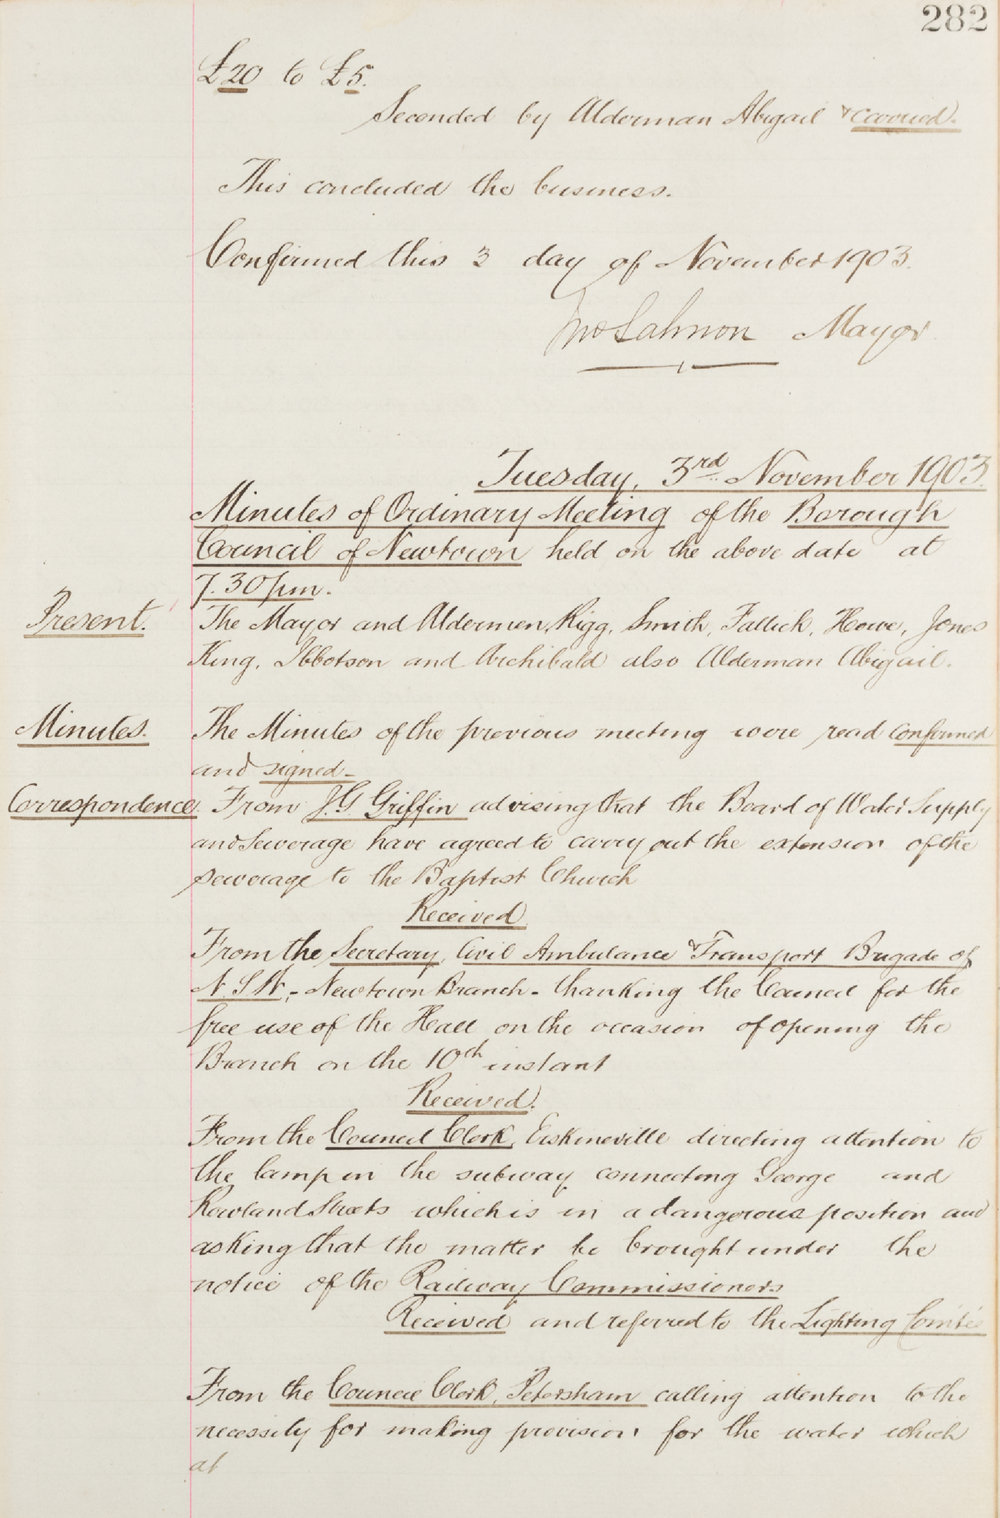 282
£20 to £5.
Seconded by Alderman Abigail & carried.
This concluded the business.
Confirmed this 3 day of November 1903.
Mayor
Tuesday, 3rd November 1903.
Minutes of Ordinary Meeting of the Borough
Council of Newtown held on the above date at
7.30 pm.
Present.
The Mayor and Aldermen, Rigg, Smith, Fallick, Howe, Jones
King, Ibbotson and Archibald also Alderman Abigail.
Minutes.
The Minutes of the previous meeting were read confirmed
and signed-
Correspondence
From J.G Griffin advising that the Board of Water Supply
and Sewerage have agreed to carry out the extension of the
sewerage to the Baptist Church
Received
From the Secretary, Civil Ambulance & Transport Brigade of
N.S.W, - Newtown Branch - thanking the Council for the
free use of the Hall on the occasion of opening the
Branch on the 10th instant
Received.
From the Council Clerk, Erskineville directing attention to
the lamp in the subway connecting George and
Rowland Streets which is in a dangerous position and
asking that the matter be brought under the
notice of the Railway Commissioners
Received and referred to the Lighting Comtee
From the Council Clerk, Petersham calling attention to the
necessity for making provision for the water which
at